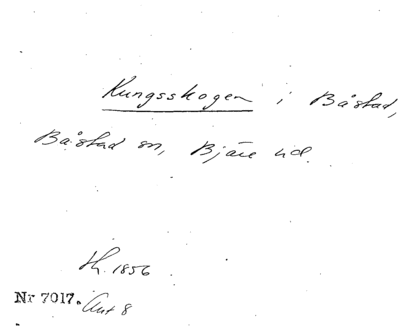 Kungsskogen i Båstad,
Båstad sn, Bjäre hd
th. 1856
Nr 7017. Ant 8